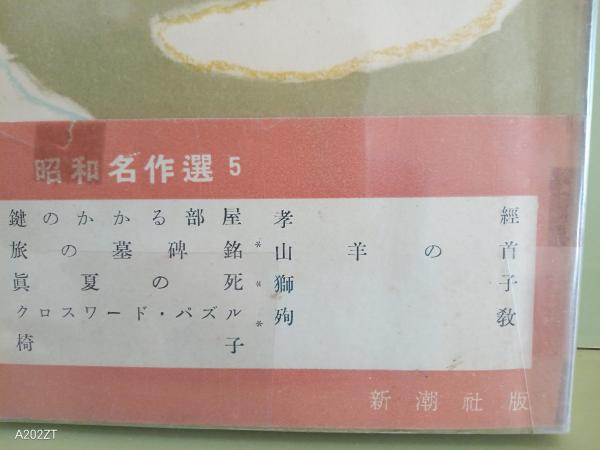 昭和名作選 5
鍵のかかる部屋
旅の墓碑銘 *
眞夏の死 *
クロスワード・パズル *
椅子
孝經
山羊の首
獅子
殉教
新潮社版
A202ZT